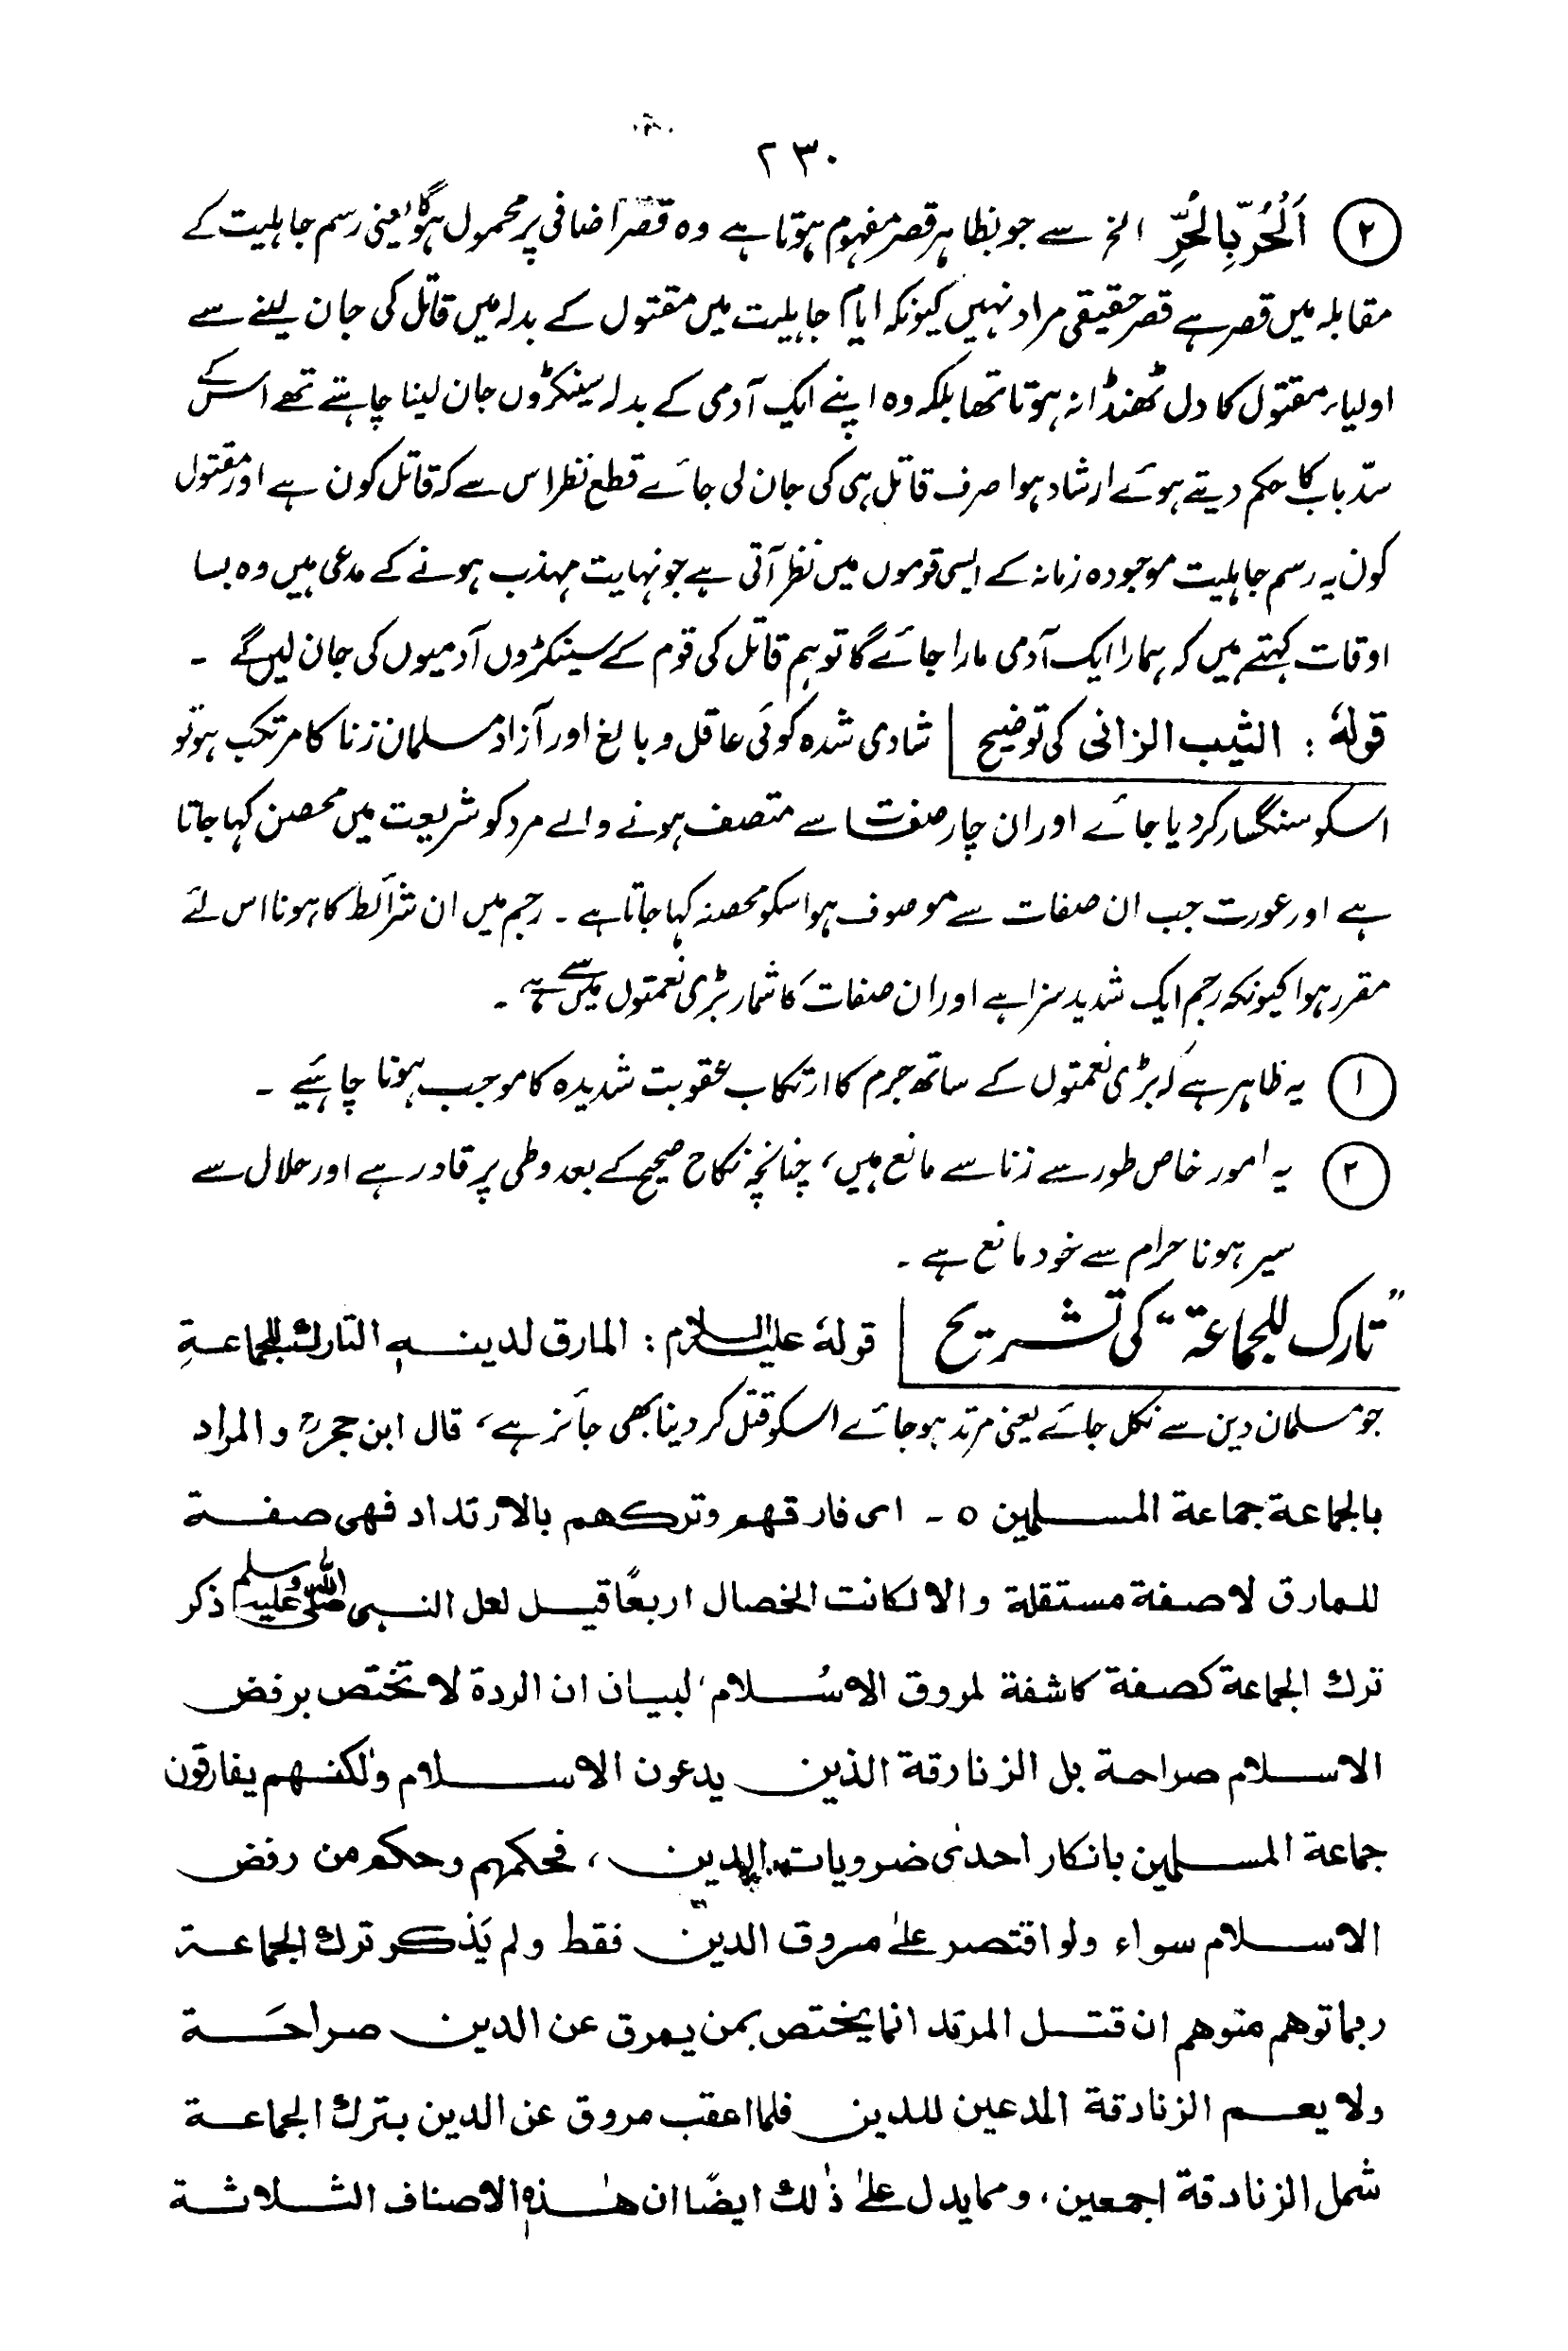 ۲۳۰
② اَلْحُرُّ بِالْحُرِّ الخ سے جو بظاہر قصر مفہوم ہوتا ہے وہ قصر اضافی پر محمول ہوگا یعنی رسم جاہلیت کے
مقابلہ میں قصر ہے قصر حقیقی مراد نہیں کیونکہ ایام جاہلیت میں مقتول کے بدلہ میں قاتل کی جان لینے سے
اولیاء مقتول کا دل ٹھنڈا نہ ہوتا تھا بلکہ وہ اپنے ایک آدمی کے بدلہ سینکڑوں جان لینا چاہتے تھے اس کے
سدّ باب کا حکم دیتے ہوئے ارشاد ہوا صرف قاتل ہی کی جان لی جائے قطع نظر اس سے کہ قاتل کون ہے اور مقتول
کون یہ رسم جاہلیت موجودہ زمانہ کے ایسی قوموں میں نظر آتی ہے جو نہایت مہذب ہونے کے مدعی ہیں وہ بسا
اوقات کہتے ہیں کہ ہمارا ایک آدمی مارا جائے گا تو ہم قاتل کی قوم کے سینکڑوں آدمیوں کی جان لیں گے ۔
قولہٗ : الثیب الزانی کی توضیح | شادی شدہ کوئی عاقل و بالغ اور آزاد مسلمان زنا کا مرتکب ہو تو
اسکو سنگسار کر دیا جائے اور ان چار صفات سے متصف ہونے والے مرد کو شریعت میں محصن کہا جاتا
ہے اور عورت جب ان صفات سے موصوف ہو اسکو محصنہ کہا جاتا ہے ۔ رجم میں ان شرائط کا ہونا اس لئے
مقرر ہوا کیونکہ رجم ایک شدید سزا ہے اور ان صفات کا شمار بڑی نعمتوں میں سے ہے ۔
① یہ ظاہر ہے کہ بڑی نعمتوں کے ساتھ جرم کا ارتکاب عقوبت شدیدہ کا موجب ہونا چاہئیے ۔
② یہ امور خاص طور سے زنا سے مانع ہیں، چنانچہ نکاح صحیح کے بعد وطی پر قادر ہے اور حلال سے
سیر ہونا حرام سے خود مانع ہے ۔
”تارک للجماعۃ“ کی تشریح | قولہٗ علیہ السلام : المارق لدینہٖ التارک للجماعۃِ
جو مسلمان دین سے نکل جائے یعنی مرتد ہو جائے اسکو قتل کر دینا بھی جائز ہے، قال ابن حجرؒ و المراد
بالجماعۃ جماعۃ المسلمین ہ ۔ ای فارقھم وترکھم بالارتداد فھی صفۃ
للمارق لا صفۃ مستقلۃ والا لکانت الخصال اربعًا قیل لعل النبی صلی اللہ علیہ وسلم ذکر
ترک الجماعۃ کصفۃ کاشفۃ لمروق الاسلام، لبیان ان الردۃ لا تختص برفض
الاسلام صراحۃ بل الزنارقۃ الذین یدعون الاسلام ولٰکنھم یفارقون
جماعۃ المسلمین بانکار احدٰی ضرویات الدین، فحکمھم وحکم من رفض
الاسلام سواء ولو اقتصر علیٰ مروق الدین فقط ولم یَذکر ترک الجماعۃ
ربما توھم متوھم ان قتل المرتد انما یختص بمن یمرق عن الدین صراحَۃ
ولا یعم الزنادقۃ المدعین للدین فلما اعقب مروق عن الدین بترک الجماعۃ
شمل الزنادقۃ اجمعین، ومما یدل علیٰ ذٰلک ایضًا ان ھٰذہ الاصناف الثلاثۃ